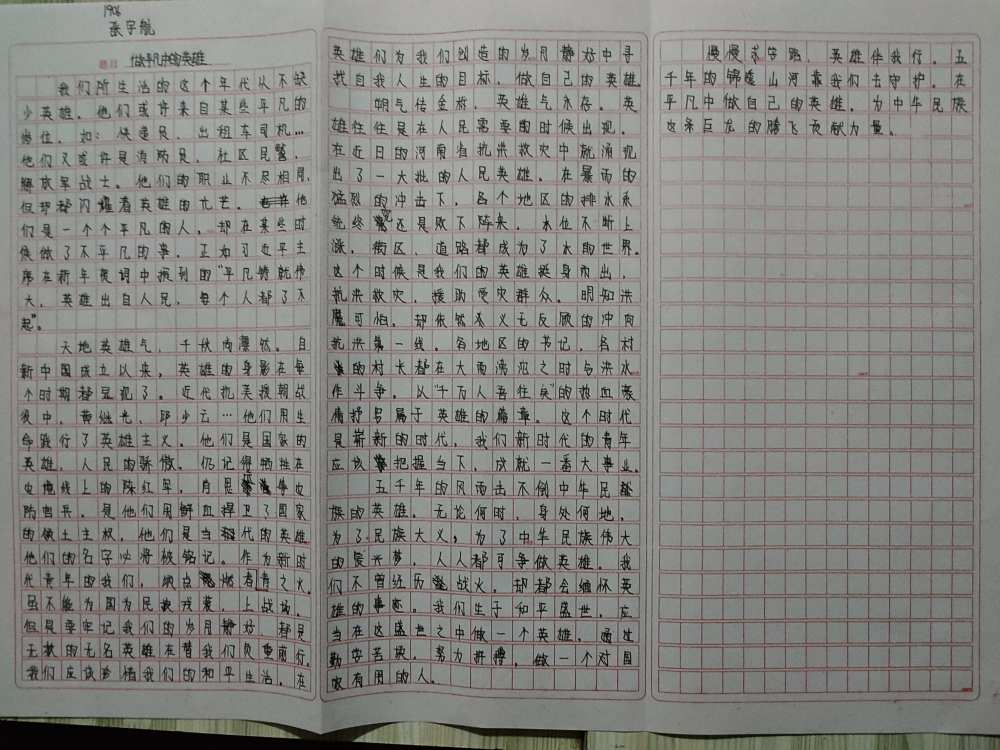 1906
张宇航
题目 做平凡中的英雄
我们所生活的这个年代从不缺
少英雄。他们或许来自某些平凡的
岗位,如:快递员、出租车司机…
他们又或许是消防员、社区民警、
解放军战士。他们的职业不尽相同,
但却都闪耀着英雄的光芒。他
们是一个个平凡的人,却在某些时
候做了不平凡的事。正如习近平主
席在新年贺词中提到的"平凡铸就伟
大,英雄出自人民,每个人都了不
起"。
天地英雄气,千秋尚凛然。自
新中国成立以来,英雄的身影在每
个时期都呈现了。近代抗美援朝战
役中,黄继光、邱少云…他们用生
命践行了英雄主义。他们是国家的
英雄,人民的骄傲。仍记得牺牲在
边境线上的陈红军,肖思远等边
防官兵。是他们用鲜血捍卫了国家
的领土主权,他们是当代的英雄
他们的名字必将被铭记。作为新时
代青年的我们,须点燃青之火。
虽不能为国为民披戎装,上战场。
但是要牢记我们的岁月静好,都是
无数的无名英雄在替我们负重前行。
我们应该珍惜我们的和平生活,在
英雄们为我们创造的岁月静好中寻
找自我人生的目标,做自己的英雄
朔气传金柝,英雄气永存。英
雄往往是在人民需要的时候出现。
在近日的河南省抗洪救灾中就涌现
出了一大批的人民英雄。在暴雨的
猛烈的冲击下,各个地区的排水系
统终究还是败下阵来,水位不断上
涨,街区、道路都成为了水的世界。
这个时候是我们的英雄挺身而出,
抗洪救灾,援助受灾群众。明知洪
魔可怕,却依然义无反顾的冲向
抗洪第一线。各地区的书记,各村
的村长都在大雨滂沱之时与洪水
作斗争。以"千万人吾往矣"的热血豪
情抒写属于英雄的篇章。这个时代
是崭新的时代,我们新时代的青年
应该把握当下,成就一番大事业。
五千年的风雨击不倒中华民
族的英雄。无论何时,身处何地,
为了民族大义,为了中华民族伟大
的复兴梦,人人都可争做英雄。我
们不曾经历战火,却都会缅怀英
雄的事迹。我们生于和平盛世,应
当在这盛世之中做一个英雄,通过
勤劳苦读,努力拼搏,做一个对国
家有用的人。
漫漫求学路,英雄伴我行。五
千年的锦绣山河靠我们去守护,在
平凡中做自己的英雄,为中华民族
这条巨龙的腾飞贡献力量。